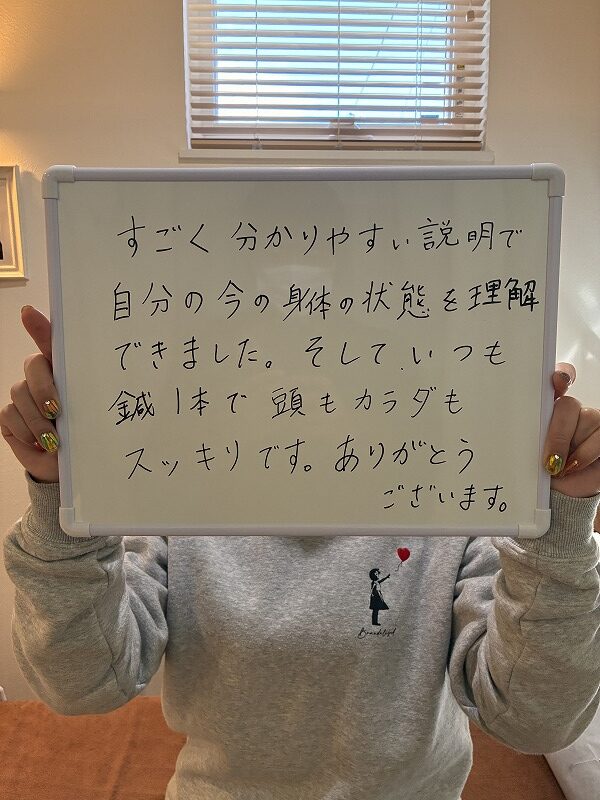 すごく分かりやすい説明で
自分の今の身体の状態を理解
できました。そして、いつも
鍼1本で頭もカラダも
スッキリです。ありがとう
ございます。